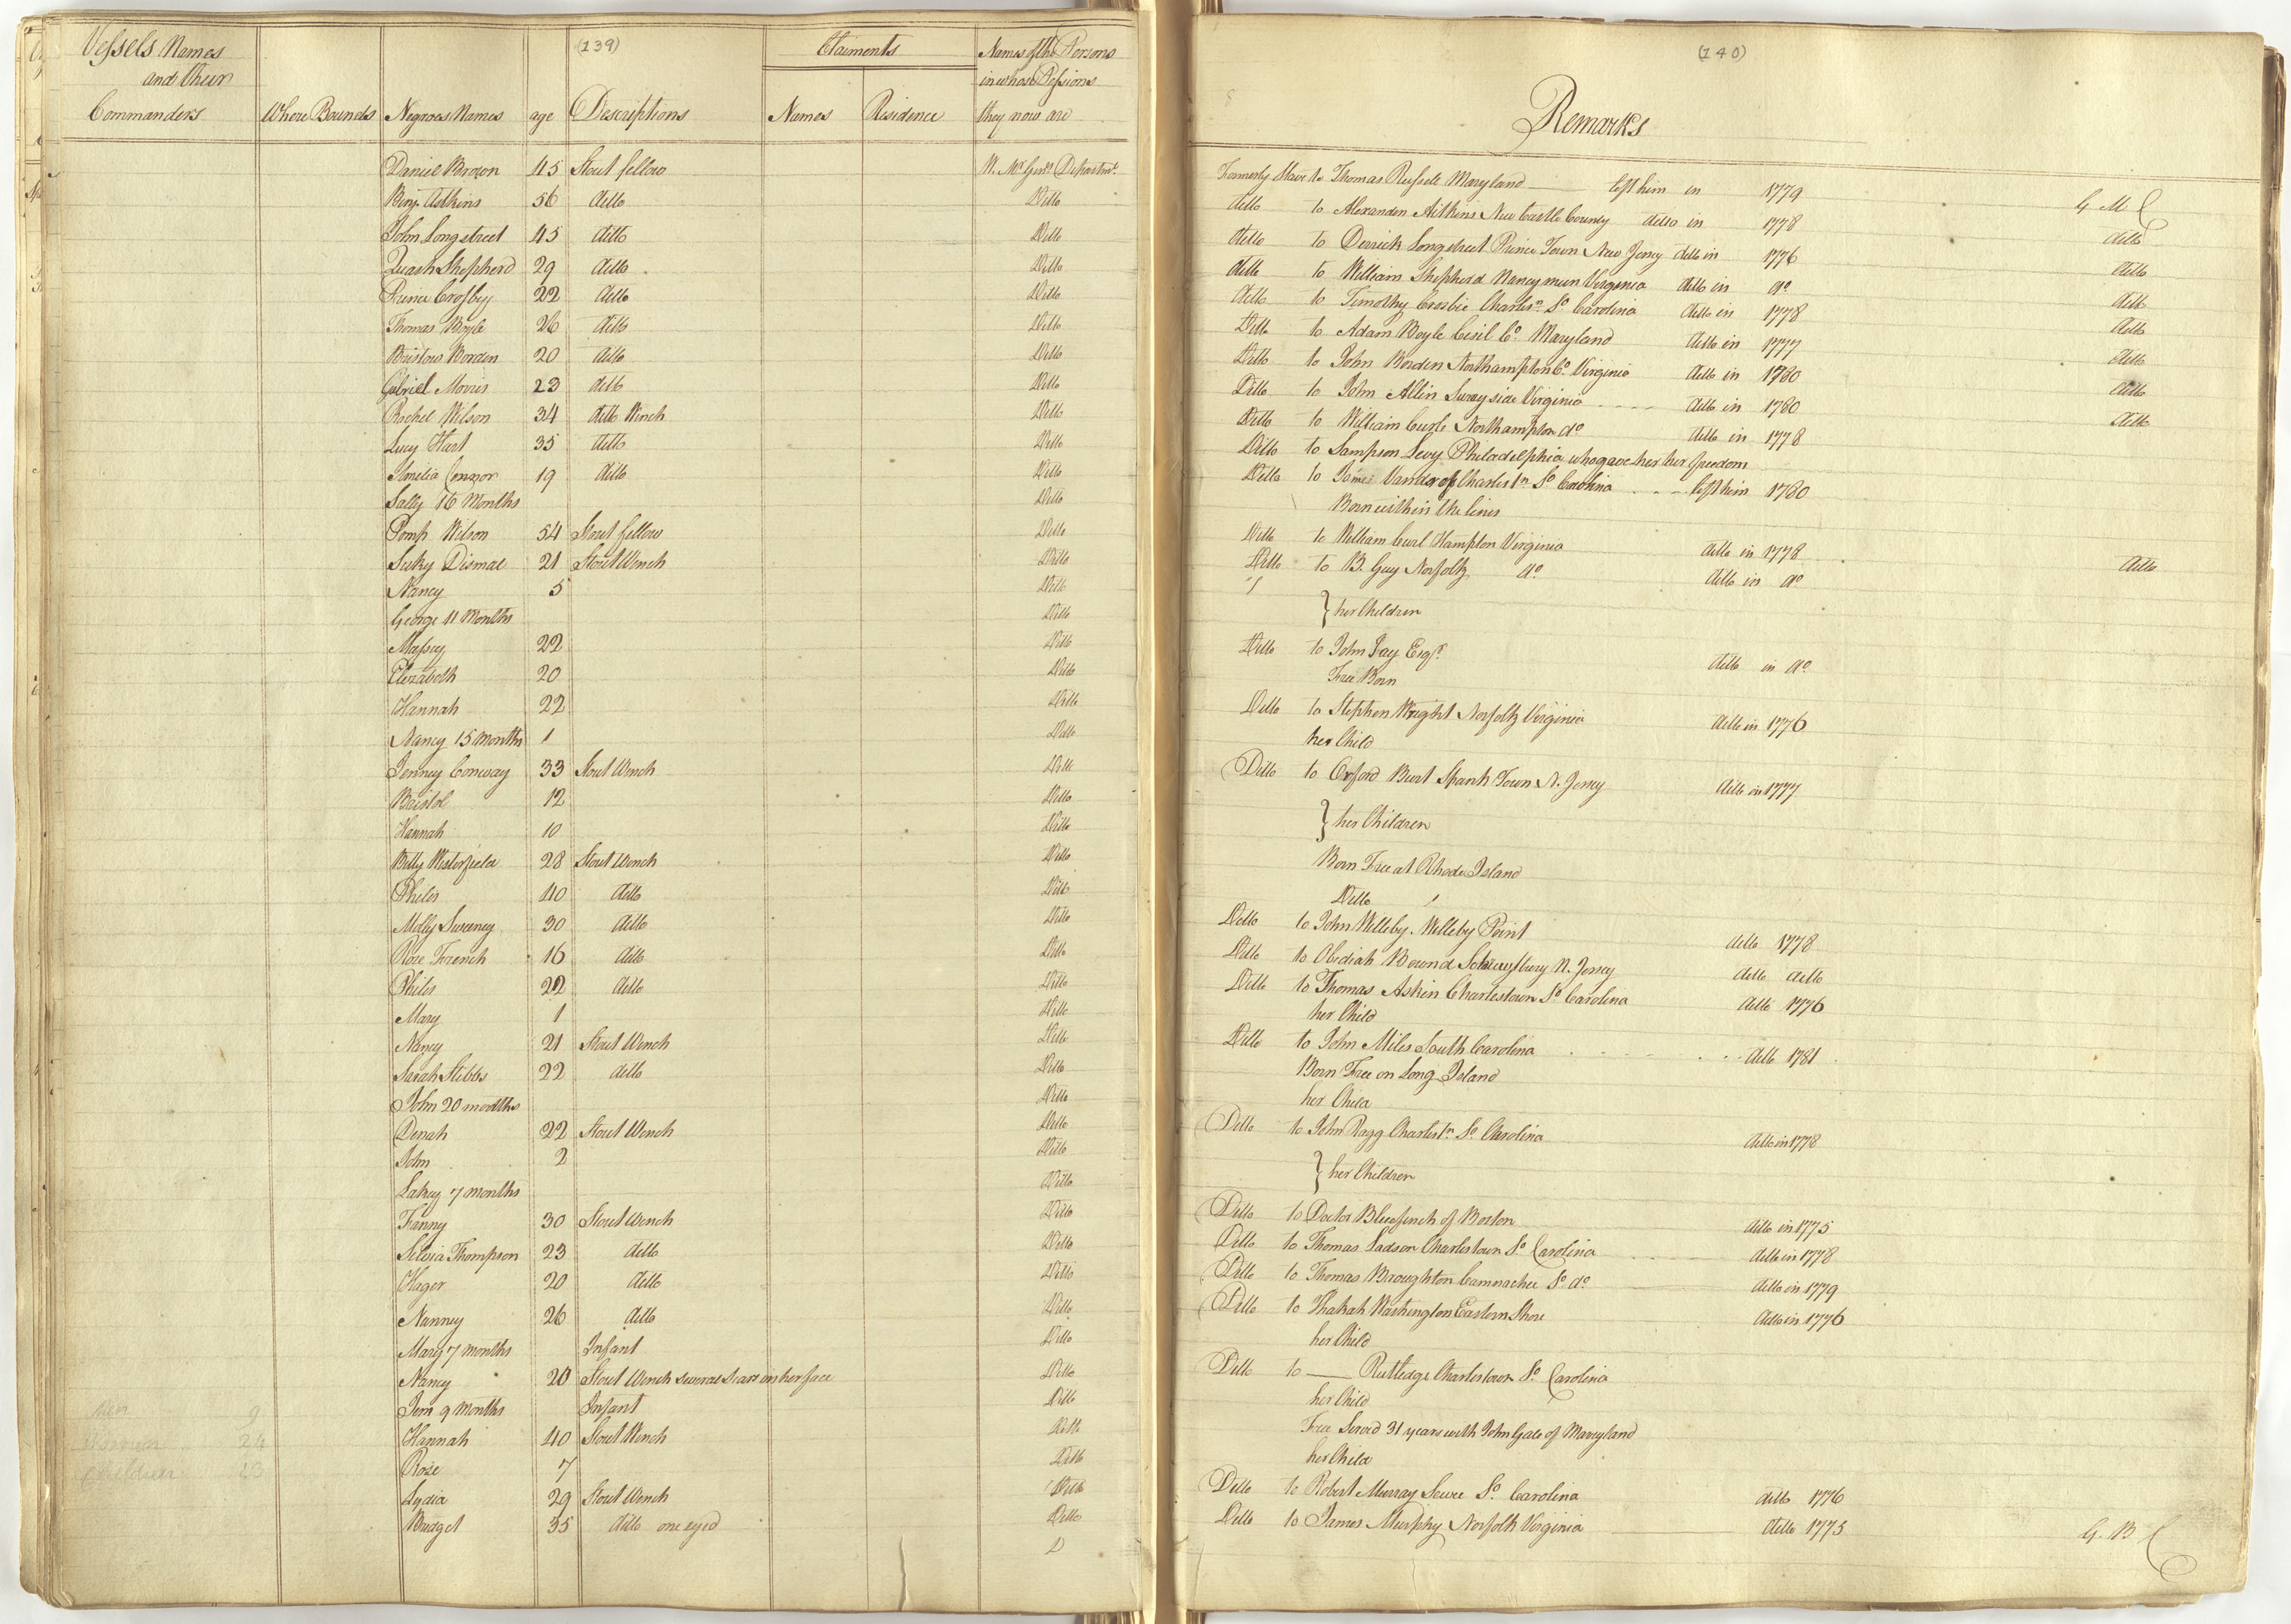 (139)
Vessels Names and their Commanders | Where Bound | Negroes Names | age | Descriptions | Claiments Names | Residence | Names of the Persons in whose Possions they now are
Daniel Brown 45 Stout fellow W. Mr Genls Departmt.
Benj. Aitkins 56 ditto Ditto
John Longstreet 45 ditto Ditto
Quash Shepherd 29 ditto Ditto
Prince Crosbey 22 ditto Ditto
Thomas Boyle 26 ditto Ditto
Bristow Borden 20 ditto Ditto
Gabriel Morris 23 ditto Ditto
Rachel Wilson 34 ditto Wench Ditto
Lucy Hart 35 ditto Ditto
Amelia Connor 19 ditto Ditto
Sally 16 Months Ditto
Pomp Wilson 54 Stout fellow Ditto
Suky Dismal 21 Stout Wench Ditto
Nancy 5 Ditto
George 11 Months Ditto
Massey 22 Ditto
Elizabeth 20 Ditto
Hannah 22 Ditto
Nancy 15 Months 1 Ditto
Jenney Conway 33 Stout Wench Ditto
Bristol 12 Ditto
Hannah 10 Ditto
Betty Westerfield 28 Stout Wench Ditto
Philis 40 ditto Ditto
Molly Sweeney 30 ditto Ditto
Rose French 16 ditto Ditto
Philis 22 ditto Ditto
Mary 1 Ditto
Nancy 21 Stout Wench Ditto
Sarah Stibbs 22 ditto Ditto
John 20 months Ditto
Denah 22 Stout Wench Ditto
John 2 Ditto
7 months Ditto
Fanny 30 Stout Wench Ditto
Silvia Thompson 23 ditto Ditto
Hager 20 ditto Ditto
Nanney 26 ditto Ditto
Mary 7 months Infant Ditto
Nancy 20 Stout Wench several scars in her face Ditto
Jem 9 months Infant Ditto
Hannah 40 Stout Wench Ditto
Rose 7 Ditto
Lydia 29 Stout Wench Ditto
Bridget 35 ditto one eyed Ditto
Men 9
Women 24
Children 13
(140)
Remarks
Formerly Slave to Thomas Russell Maryland left him in 1779 G M
ditto to Alexander Aitkins New Castle County ditto in 1778 ditto
ditto to Derrick Longstreet Prince Town New Jersey ditto in 1776 ditto
ditto to William Shepherd Nancymun Virginia ditto in do ditto
ditto to Timothy Crosbie Charlesn. So Carolina ditto in 1778 ditto
Ditto to Adam Boyle Cecil Co. Maryland ditto in 1777 ditto
Ditto to John Borden Northampton Co. Virginia ditto in 1780 ditto
Ditto to John Allin Surry side Virginia ditto in 1780 ditto
Ditto to William Curle Northampton do ditto in 1778
Ditto to Sampson Levy Philadelphia who gave her her freedom
Ditto to James Charlestn So Carolina left him 1780
Born within the lines
Ditto to William Curl Hampton Virginia ditto in 1778
Ditto to B. Guy Norfolk do. ditto in do ditto
} her Children
Ditto to John Jay Esqr. ditto in do.
Free Born
Ditto to Stephen Wright Norfolk Virginia ditto in 1776
her Child
Ditto to Oxford Burt Spank Town N. Jersey ditto in 1777
} her Children
Born Free at Rhode Island
Ditto
Ditto to John Willeby. Willeby Point ditto 1778
Ditto to Obidiah Bound Schrewsbury N. Jersey ditto ditto
Ditto to Thomas Askin Charlestown So Carolina ditto 1776
her Child
Ditto to John Miles South Carolina ditto 1781
Born Free on Long Island
her Child
Ditto to John Ragg Charlestn. So. Carolina ditto in 1778
} her Children
Ditto to Doctor Bluefinch of Boston ditto in 1775
Ditto to Thomas Ladson Charlestown So. Carolina ditto in 1778
Ditto to Thomas Broughton So. do. ditto in 1779
Ditto to Washington Eastern Shore ditto in 1776
her Child
Ditto to —— Rutledge Charlestown So. Carolina
her Child
Free Served 31 years with John Gale of Marryland
her Child
Ditto to Robert Murray So. Carolina ditto 1776
Ditto to James Murphy Norfolk Virginia ditto 1775 G. B